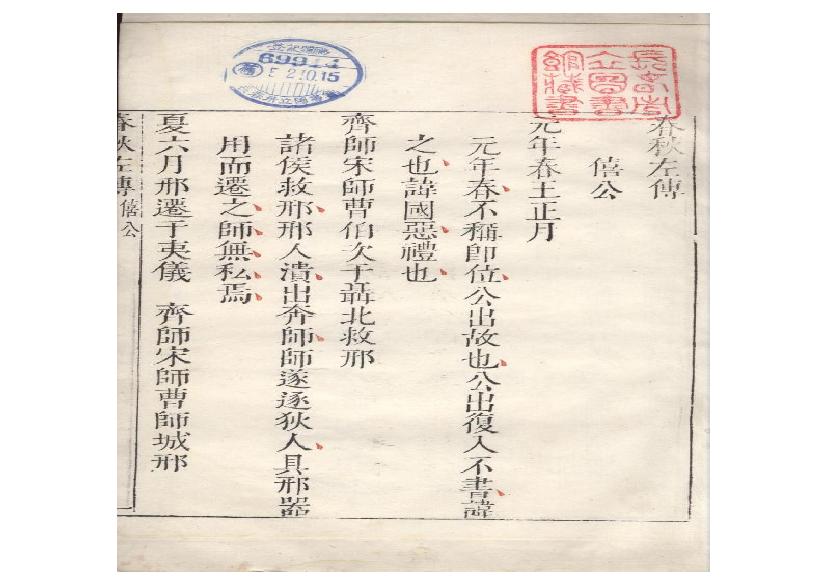 春秋左傳
僖公
元年春王正月
元年春不稱卽位公出故也公出復入不書諱
之也諱國惡禮也
齊師宋師曹伯次于聶北救邢
諸侯救邢邢人潰出奔師師遂逐狄人具邢器
用而遷之師無私焉
夏六月邢遷于夷儀 齊師宋師曹師城邢
春秋左傳 僖公
69944
2.10.15